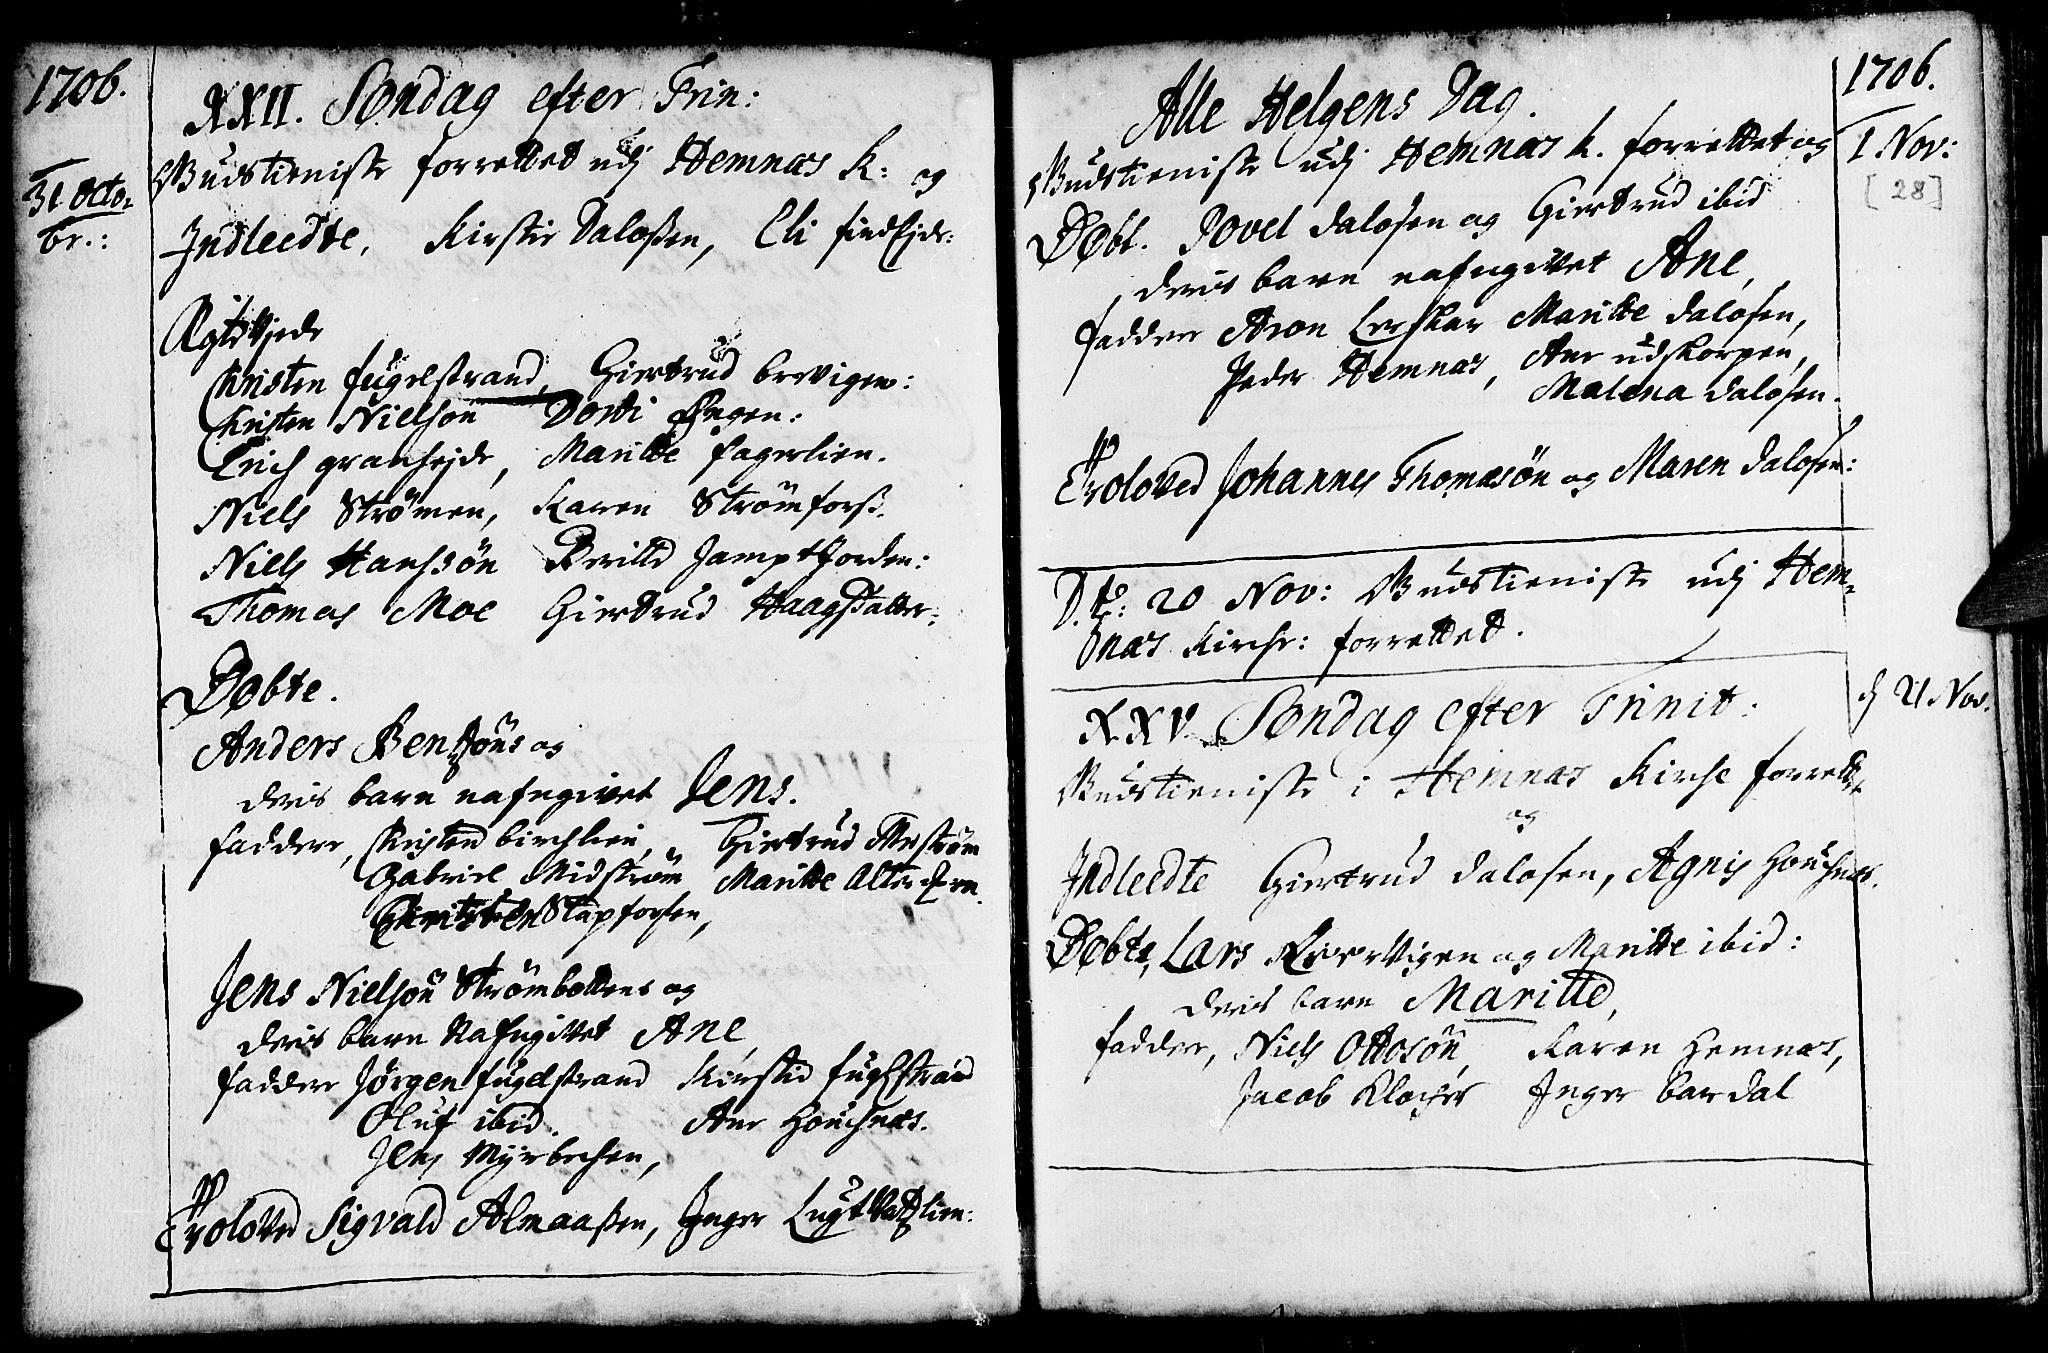 1706.
XXII. Søndag efter Trin:
31 Octo-
br.:
Gudstieniste forrettet udj Hemnæs K: og
Indleedte, Kirstie Daloßen, Eli findEide:
Ægtviede
Christen fugelstrand, Giertrud brevigen:
Christen Nielsøn Dordi Engen:
Erich granheide, Maritte fagerlien.
Niels Strømen, Karen Strømforß.
Niels Hanssøn Beritte Jamptjorden:
Thomas Moe Giertrud Haag
Døbte.
Anders Bentsøns og
deris barn nafngivet Jens.
faddere, Christen birchlien, Giertrud
Gabriel Midstrøm, Maritte Alteren.
Christen Stapforsen,
Jens Nielsøn Strømbottens og
deris barn Nafngivet Ane
faddere Jørgen fugelstrand Kirstid fuglstrand
Oluf ibid. Ane Houchnæs.
Jens Myrbechen,
Troloved Sigvald Almaaßen, Inger Lugtvatlien:
1706.
Alle Helgens Dag.
1 Nov:
[28]
Gudstieniste udj Hemnæs k. forrettet og
Døbt. Povel Dalosen og Giertrud ibid
deris barn nafngivet Ane,
faddere Aron Lerskar Maritte Dalosen,
Peder Hemnæs, Ane udskorpen,
Malena Dalosen.
Troloved Johannes Thomæsøn og Maren Dalosen:
D. to: 20 Nov: Gudstieniste udj Hem-
næs Kirche: forrettet.
d 21. Nov.
XXV. Søndag efter Trinit:
Gudstieniste i Hemnæs Kirche forrett:
og
Indleedte Giertrud Dalosen, Agnis Houchnæs.
Døbte, Lars Leervigen og Maritte ibid:
deris barn Maritte,
faddere, Niels Ottosøn, Karen Hemnæs,
Jacob Klocher Inger bardal